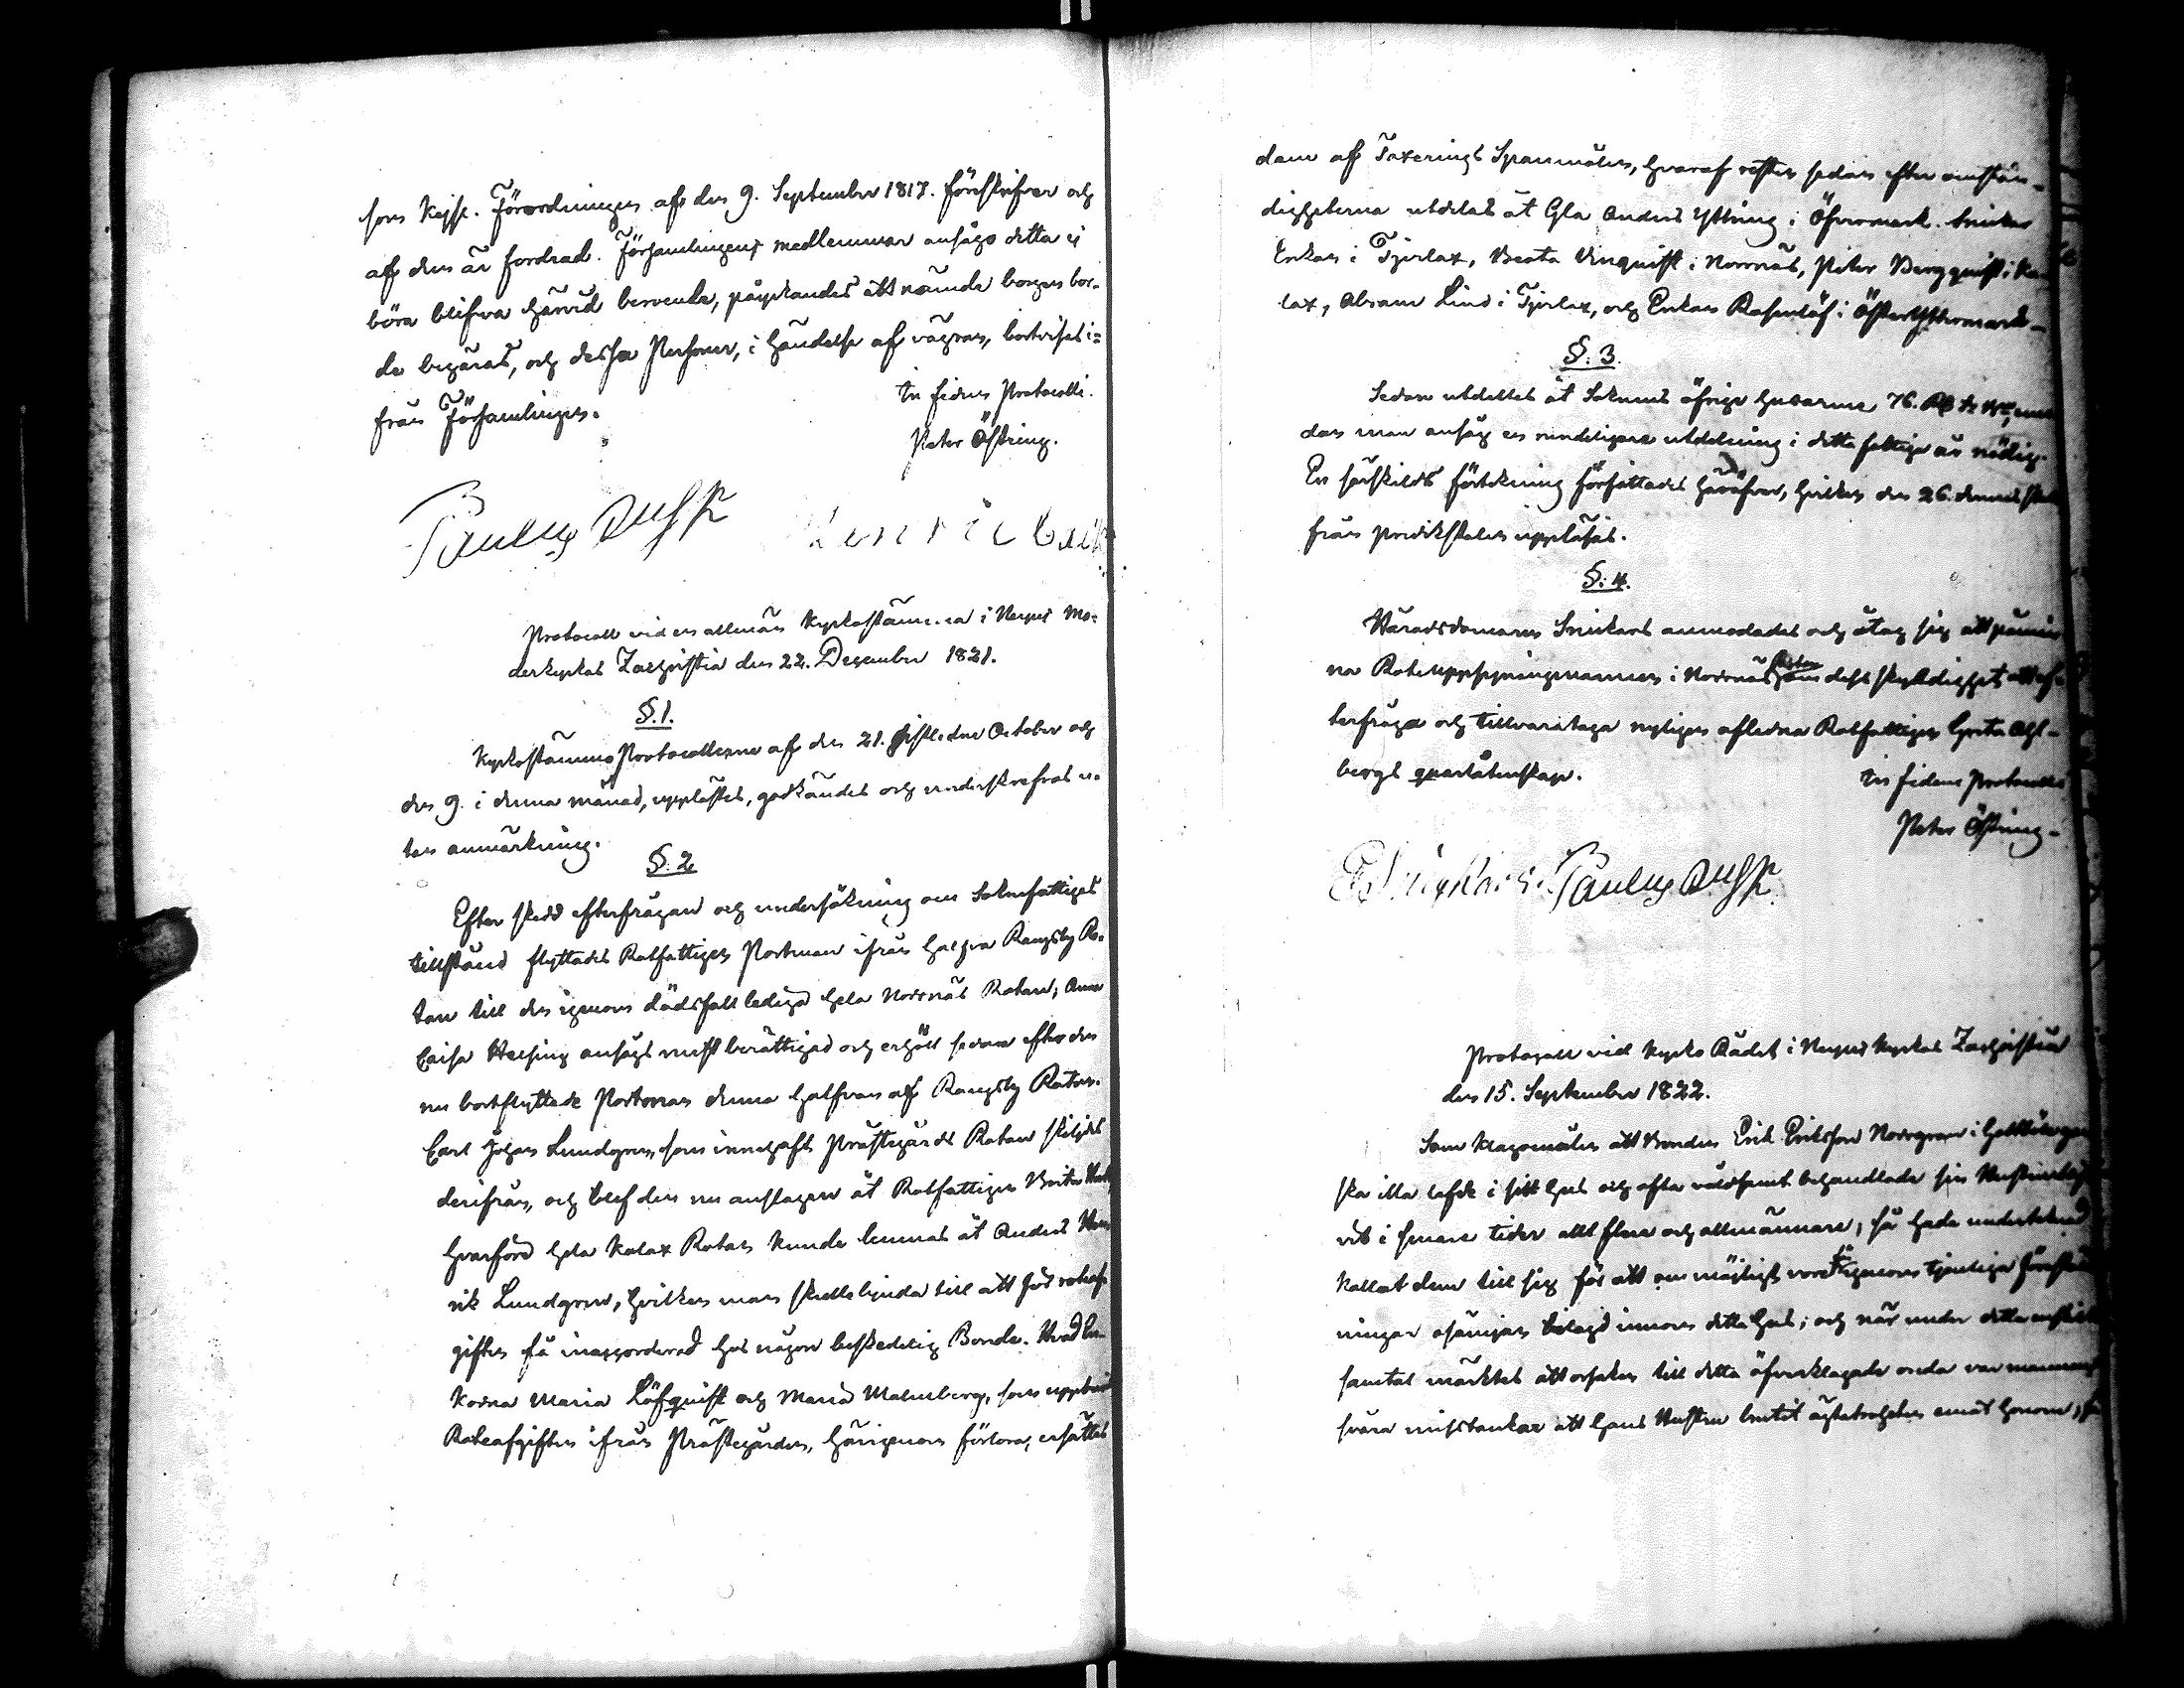 som Kejs. Förordningen af den 9. September 1817. föreskrifver och
af dem är fordrad. Församlingens medlemmar ansågo detta ej
böra blifva härvid beroende, påyrkandes att nämnde borgen bor-
de begäras, och dessa Personer, i händelse af vägran, bortvisas i=
från Församlingen.
In fidem Protocolli.
Peter Östring.
Paulus
Henric
Protocoll vid en allmän Kyrkostämma i Nerpes Mo-
derkyrkas Zachristia den 22. December 1821.
§.1.
Kyrkostämmo Protocollerne af den 21. sistledne October och
den 9. i denna månad, upplästes, godkändes och underskrefvos u-
tan anmärkning.
§.2
Efter skedd efterfrågan och undersökning om Soknefattiges
tillstånd flyttades Rotfattigen Portman ifrån halfva Rangsby Ro-
tan till den igenom dödsfall lediga hela Norrnäs Rotan; Anna
Caisa Helsing ansågs mest berättigad och erhöll sedan efter den
nu bortflyttade Portman denna halfvan af Rangsby Rotan.
Carl Johan Lundgren, som innehaft Prästegårds Rotan skiljdes
derifrån, och blef den nu anslagen åt Rotfattigen Brita
hvarförе hela Kalax Rotan kunde lemnas åt Anders Hen
rik Lundgren, hvilken man skulle bjuda till att för rotaf
giften få inaccorderad hos någon beskedelig Bonde. Hvad En
korna Maria Löfquist och Maria Malmberg, som uppburit
Roteafgiften ifrån Prästegården, härigenom förlora, ersättes
dem af Taxerings Spannmålen, hvaraf resten sedan efter omstän-
digheterna utdelas åt Gla Anders Ytting i Öfvermark.
Enkan i Tjerlax, Beata Enquist i Norrnäs, Peter Bergquist i Ka
lax, Abram Lind i Tjerlax, och Enkan Rosenlöf i ÖsterYttermark.
§.3.
Sedan utdeltes åt Soknens öfrige husarme 76.
dan man ansåg en rundeligare utdelning i detta fattiga år nödig.
En särskild förtekning författades häröfver, hvilken den 26. dennes skulle
från predikstolen uppläsas.
§.4.
Häradsdomaren Snickars anmodades och åtog sig att påmin
na Roteuppsyningsmannen i Norrnäs om dess skyldighet att ef-
terfråga och tillvarataga nyligen aflidna Rotfattigen Greta Ahl-
bergs qvarlåtenskap.
In fidem Protocolli
Peter Östring.
Paulus
Protocoll vid Kyrko Rådet i Nerpes Kyrkas Zachristia
den 15. September 1822.
Som klagomålen att Bonden Erik Eriksson Norrgran i
ska illa lefde i sitt hus och ofta våldsamt behandlade sin Hustru
vit i senare tider allt flere och allmännare, så hade undertecknad
kallat dem till sig för att om möjligt vore igenom tjenliga föreställ
ningar osämjan bilagd innom detta hus; och när under detta enskilt
samtal märktes att orsaken till detta öfverklagade onda var mannens
svåra misstankar att hans Hustru brutit ägtatroheten emot honom,